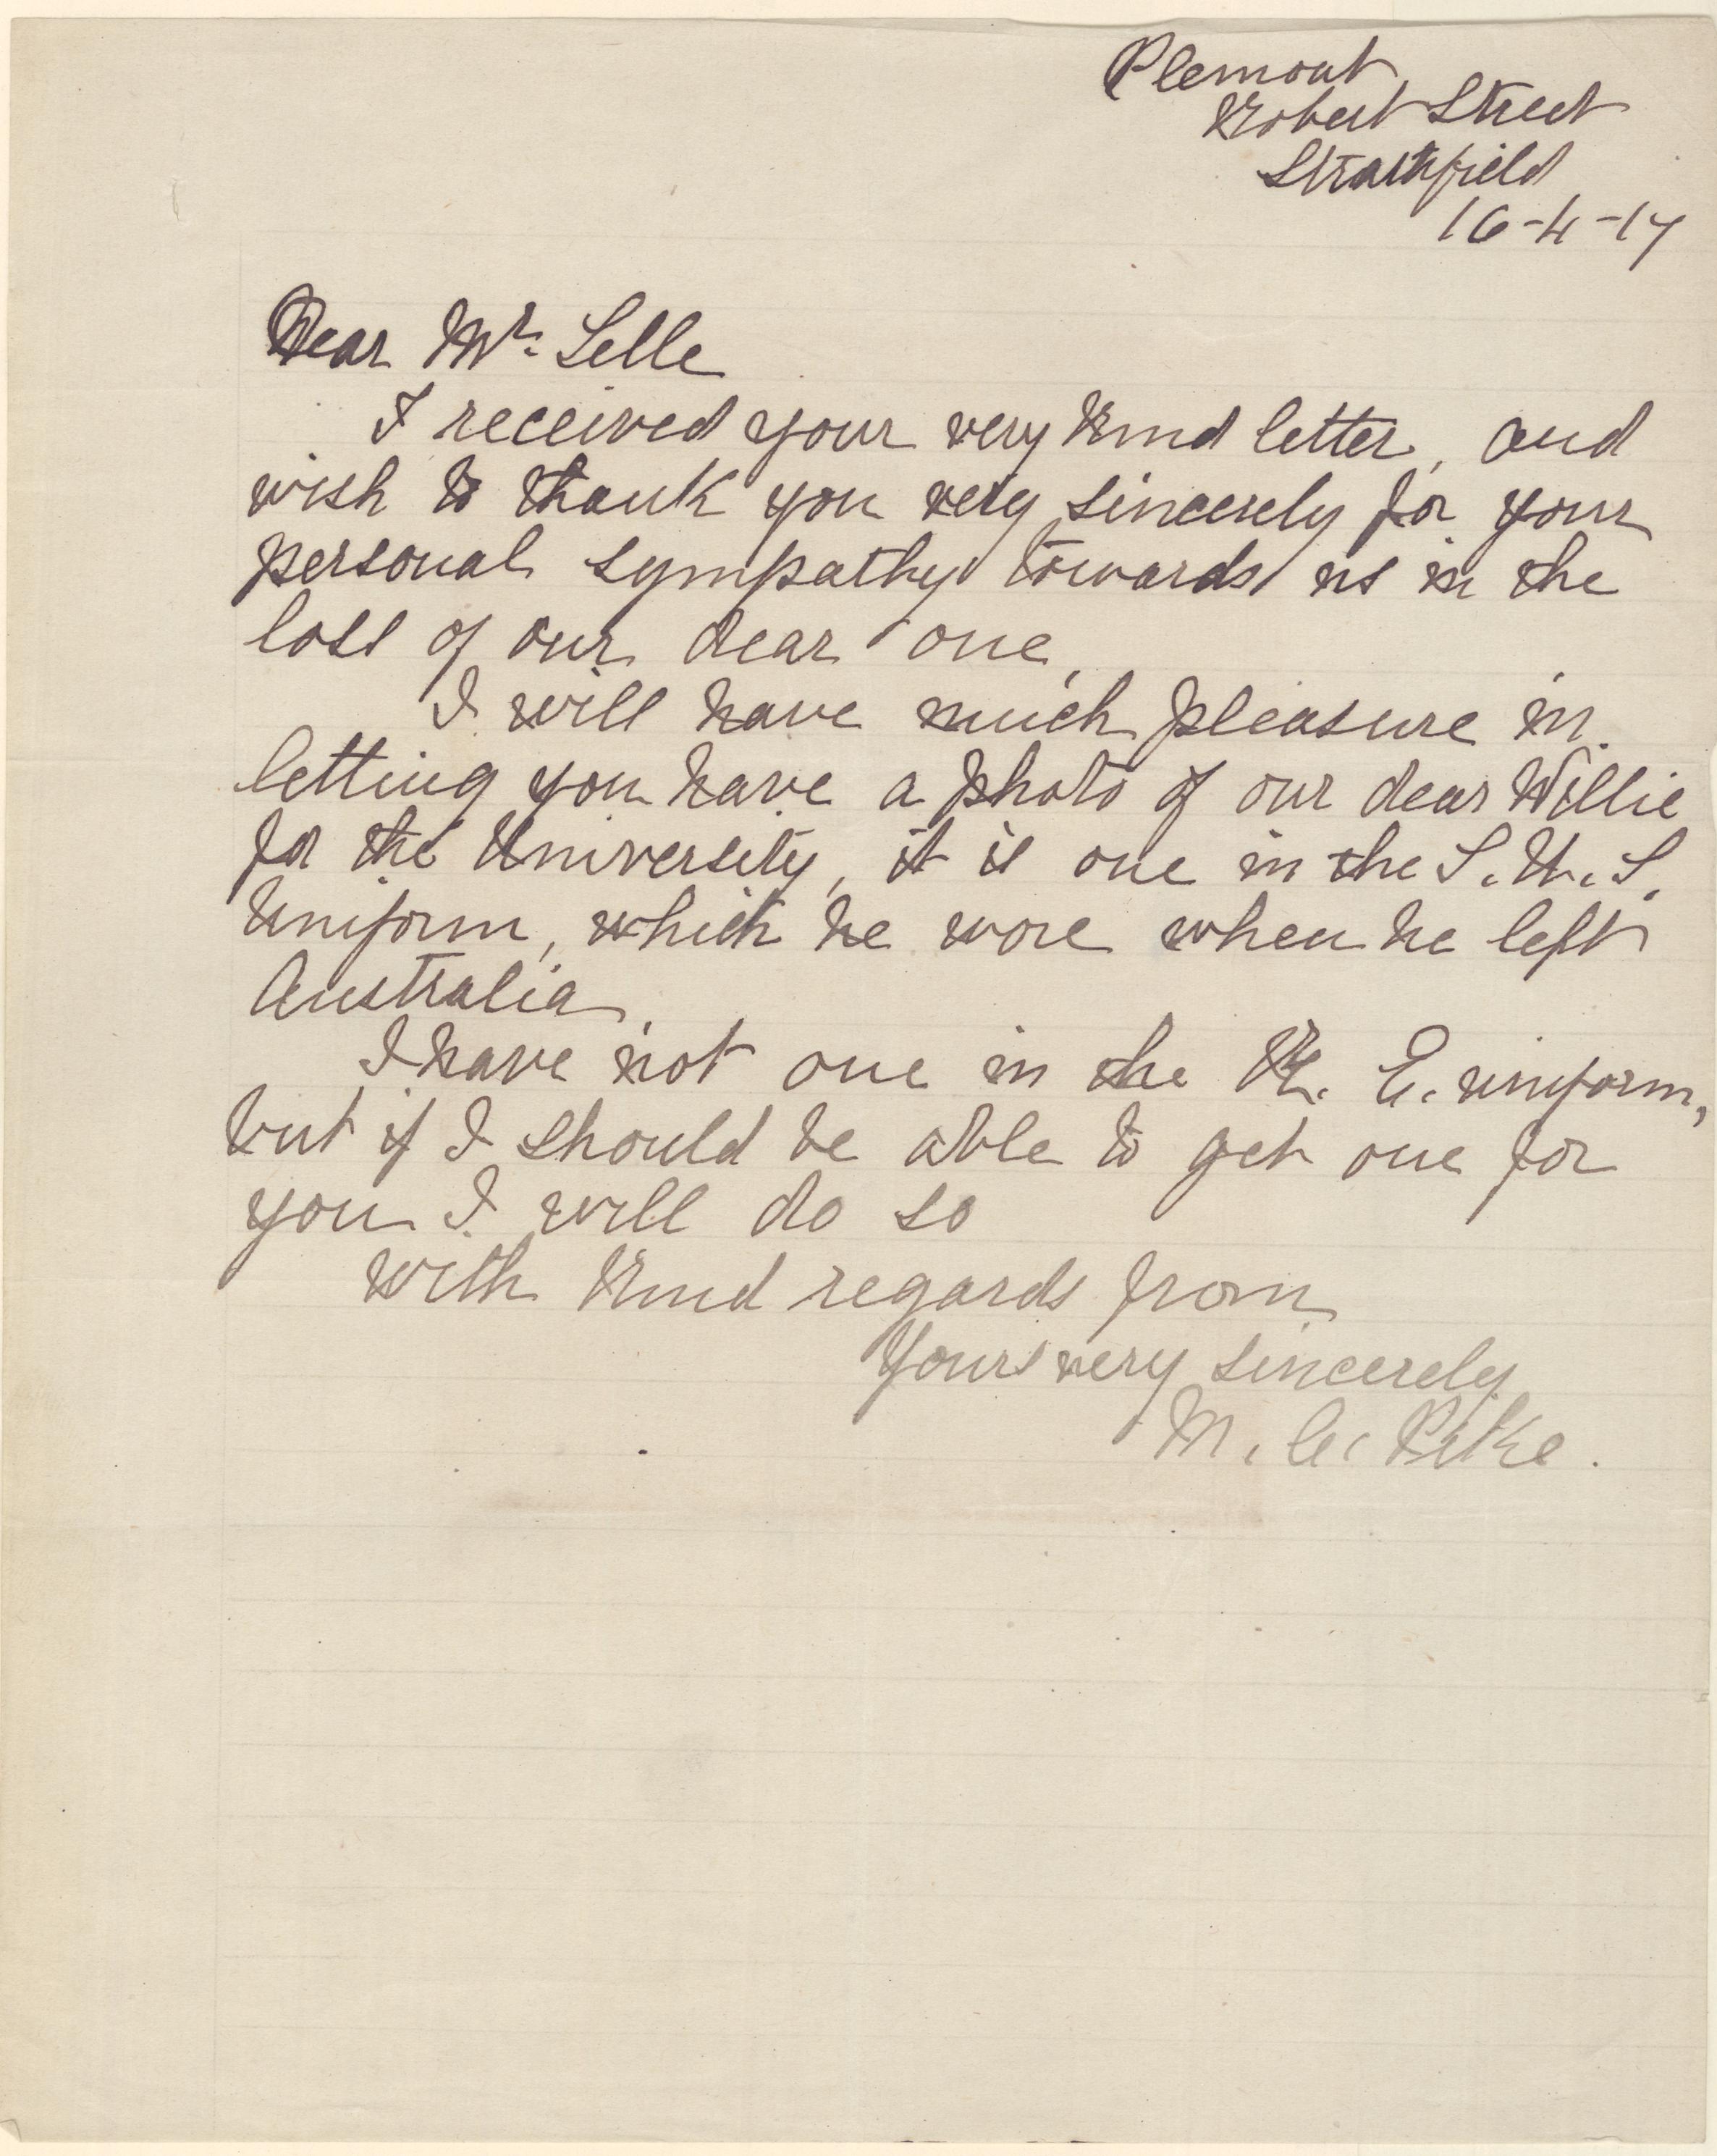 Plemont,
Robert Street
Strathfield
16-4-17
Dear Mr. Selle
I received your very kind letter, and
wish to thank you very sincerely for your
personal sympathy towards us in the
loss of our dear one,
I will have much pleasure in
letting you have a photo of our dear Willie
for the University, it is one in the S.U.S.
Uniform, which he wore when he left
Australia,
I have not one in the R. E. uniform,
but if I should be able to get one for
you I will do so
With kind regards from
Yours very sincerely
M.